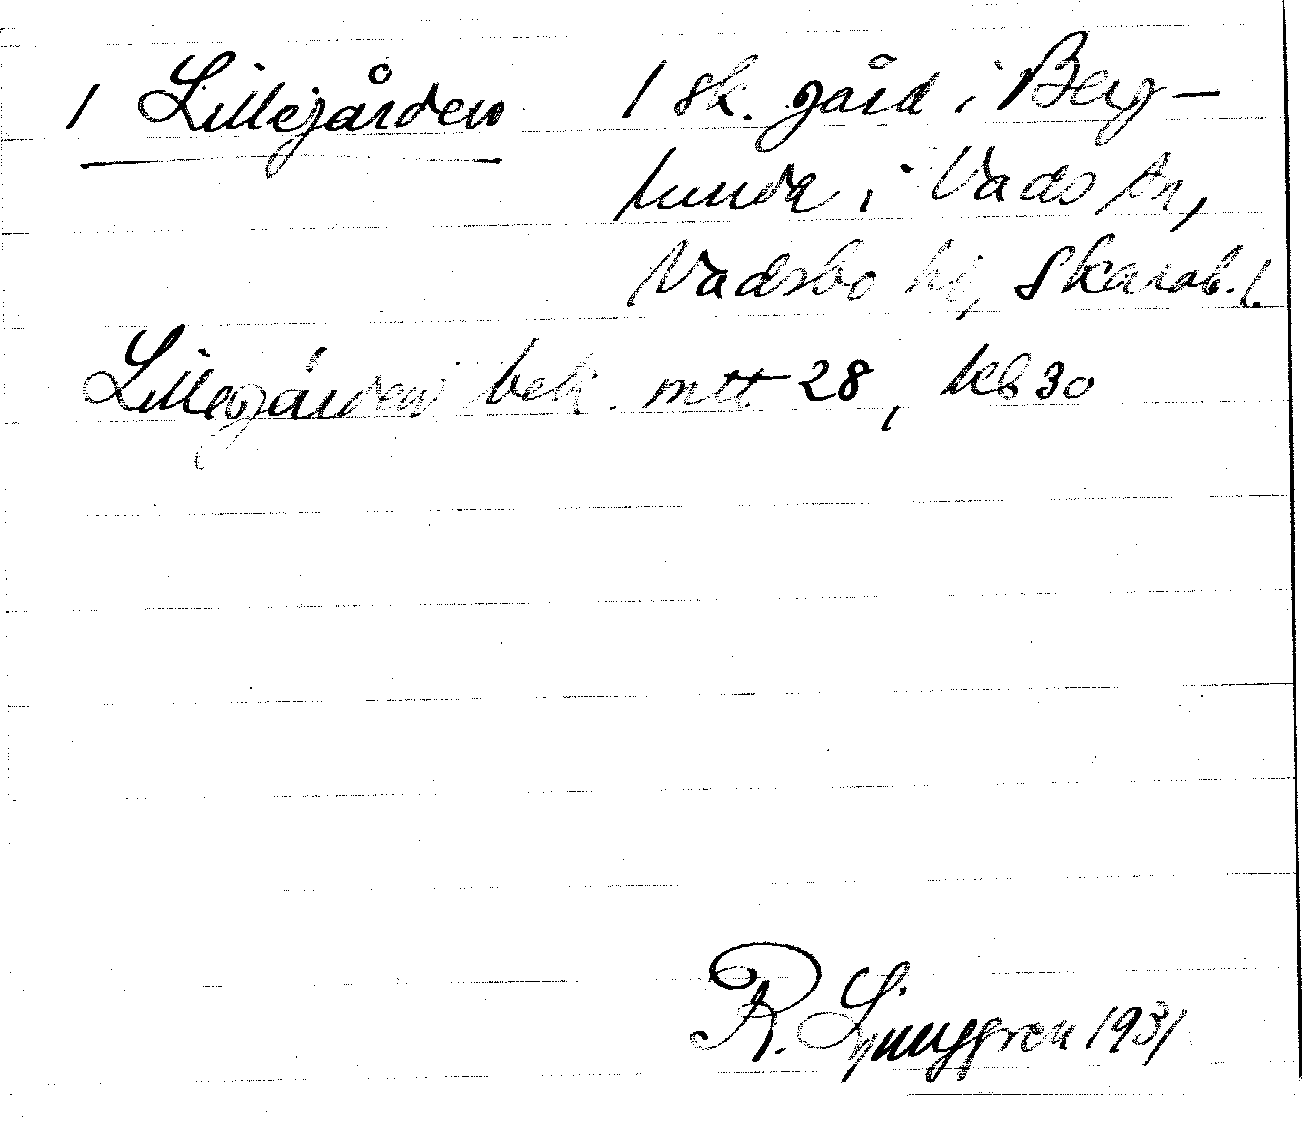 1 Lillegården 1 sk. gård i Berg-
lunda i Vads sn,
Vadsbo hd, Skarab. l.
Lillegården bek. mtt 28, Kb 30
R. Ljunggren 1931